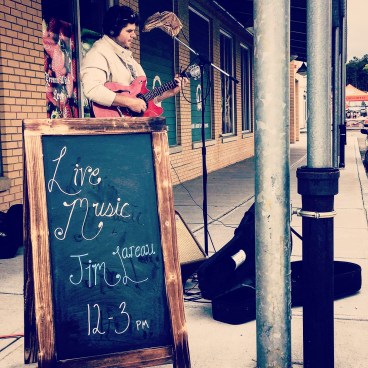 Live
Music
Jim Gareau
12-3 PM